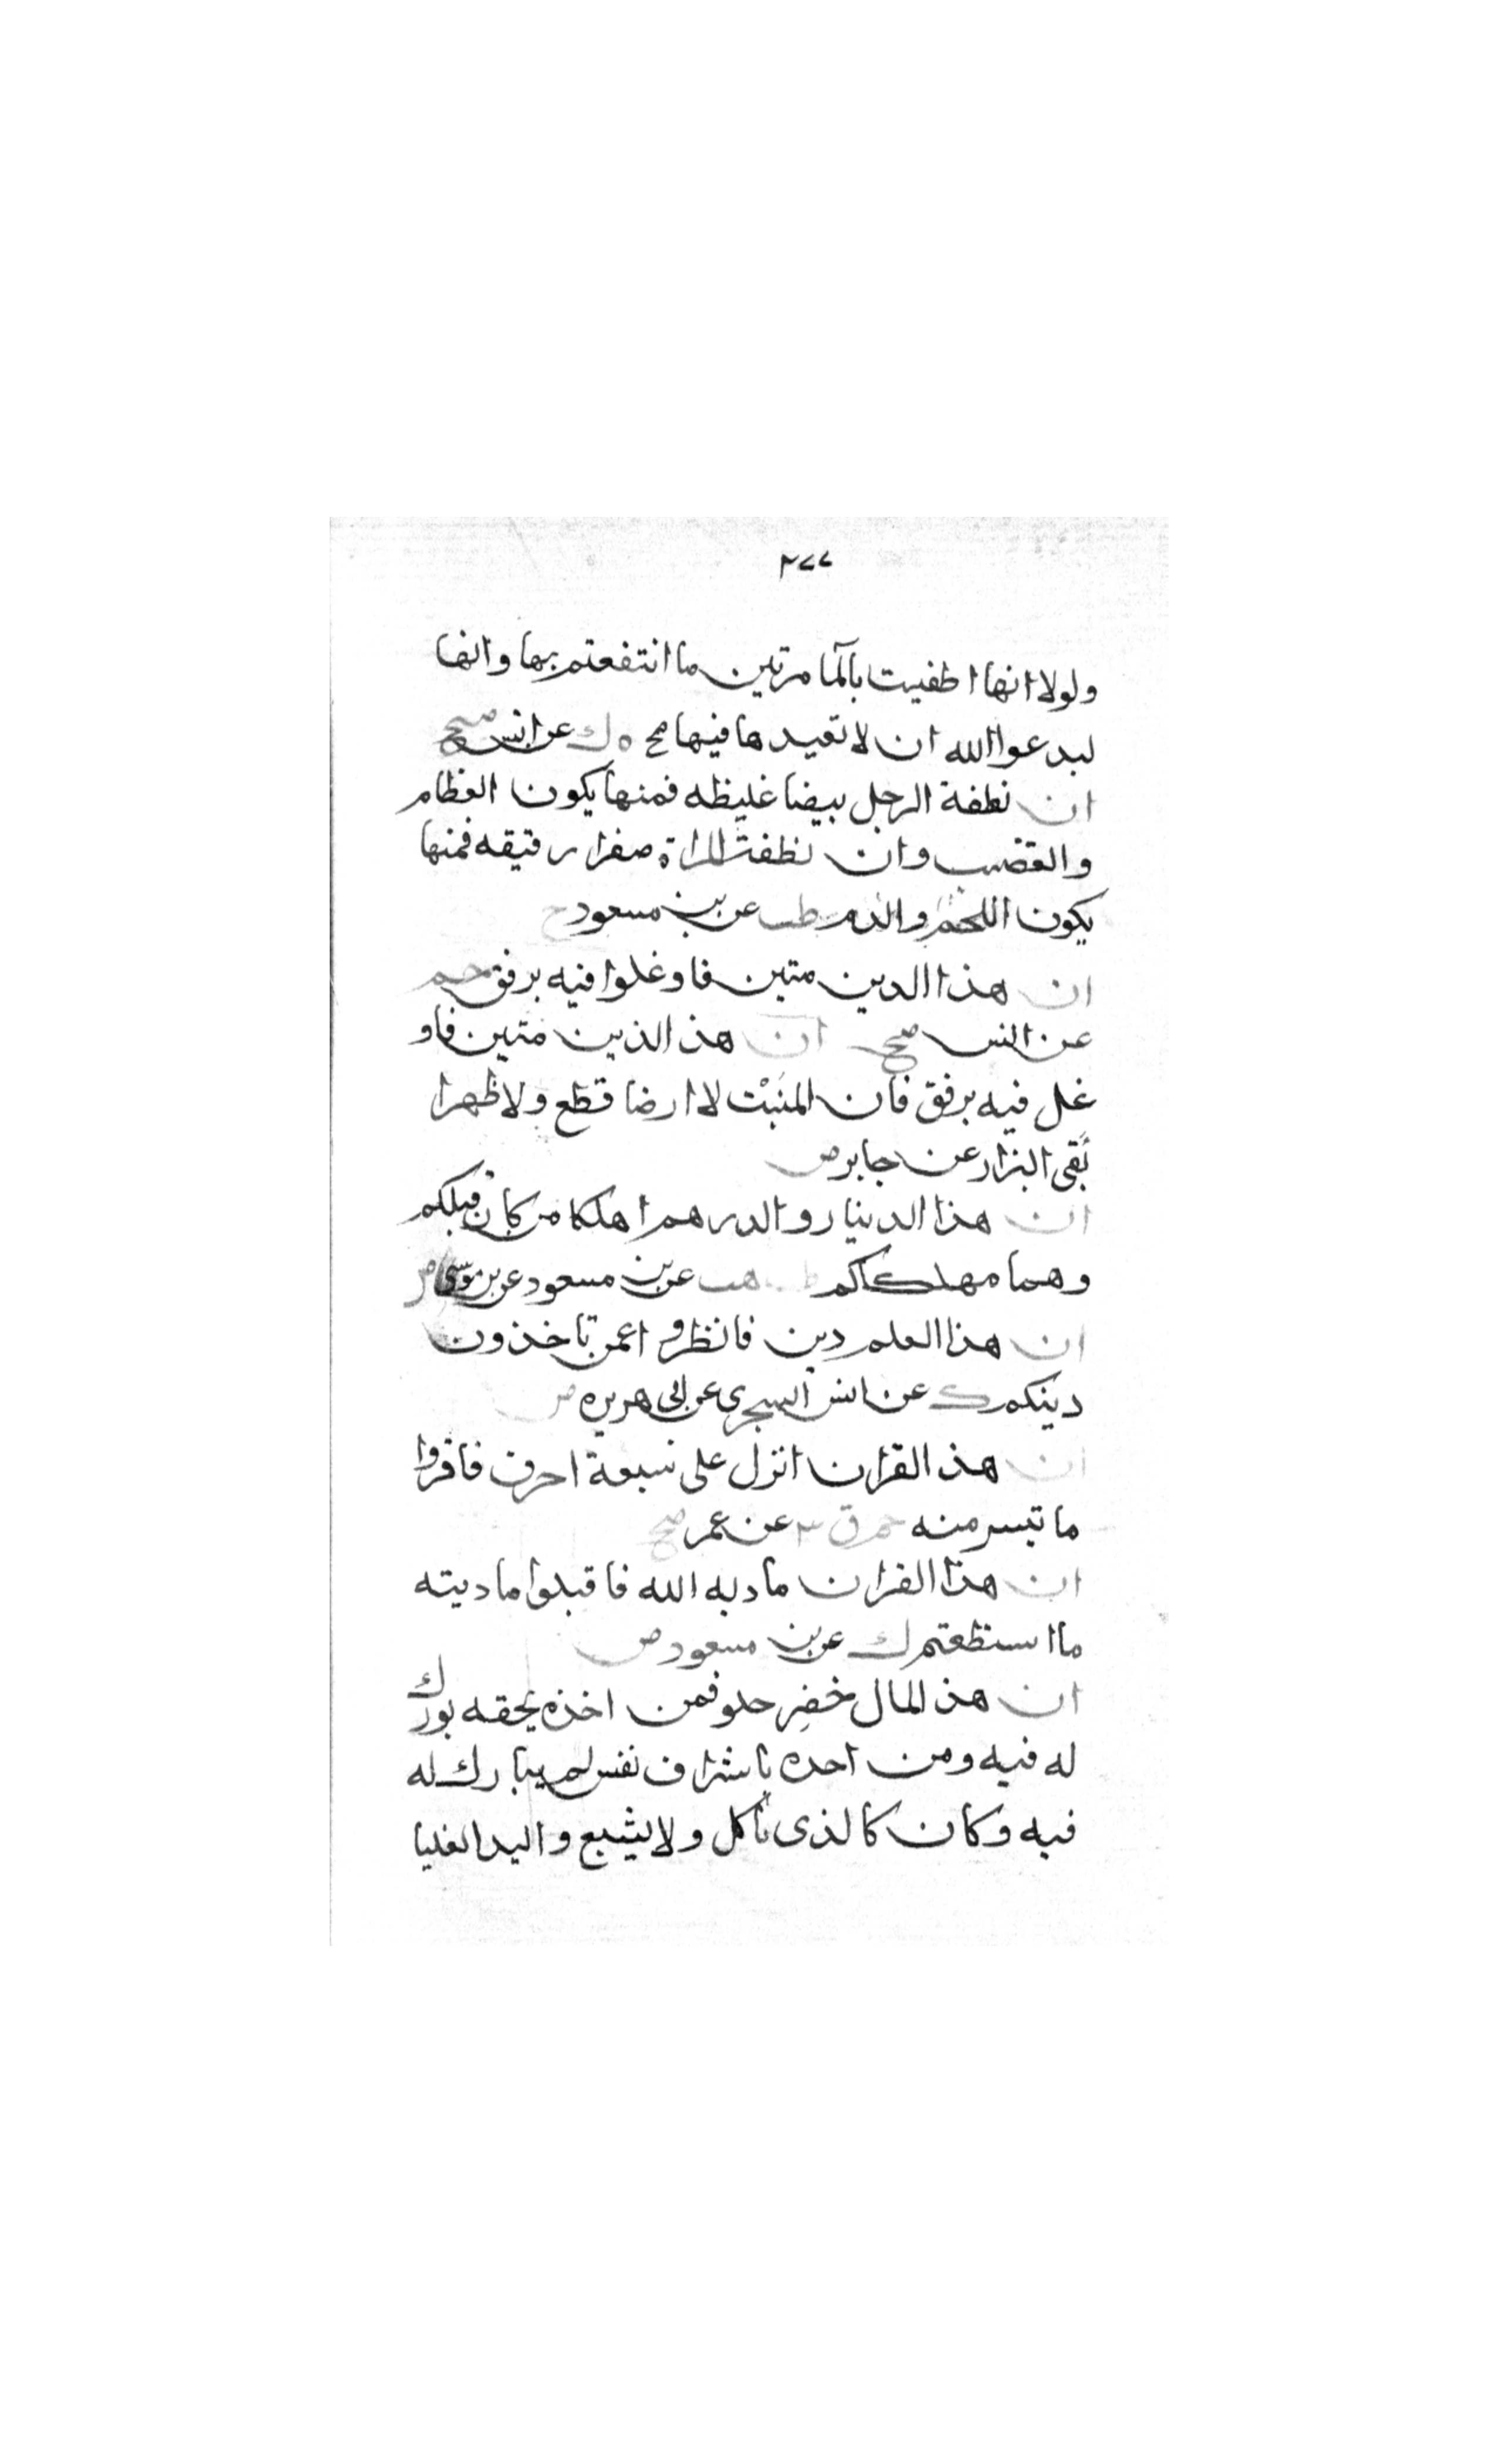 ٢٧٧
ولولا انها اطفيت بالما مرتين ما انتفعتم بها وانها
ليدعوا الله ان لا تعيدها فيها مح ه ك عن انس صح
ان نطفة الرجل بيضا غليظه فمنها يكون العظام
والعصب وان نطفة المراة صفرا رقيقه فمنها
يكون اللحم والدم طب عن بن مسعود ح
ان هذا الدين متين فاوغلوا فيه برفق حم
عن انس صح ان هذا الدين متين فاو
غل فيه برفق فان المنبت لا ارضا قطع ولا ظهرا
بقى البزار عن جابر ض
ان هذا الدينار والدرهم اهلكا من كان قبلكم
وهما مهلكاكم طب هب عن بن مسعود عن بن موسى ض
ان هذا العلم دين فانظروا عمن تاخذون
دينكم ك عن انس السجزى عن ابى هريره ض
ان هذ القران انزل على سبعة احرف فاقروا
ما تيسر منه حم ق ٣ عن عمر صح
ان هذا القران مادبه الله فاقبلوا مادبته
ما استطعتم ك عن بن مسعود ض
ان هذ المال خضر حلو فمن اخذه بحقه بورك
له فيه ومن اخده باشراف نفس لم يبارك له
فيه وكان كالذى ياكل ولا يشبع واليد العليا